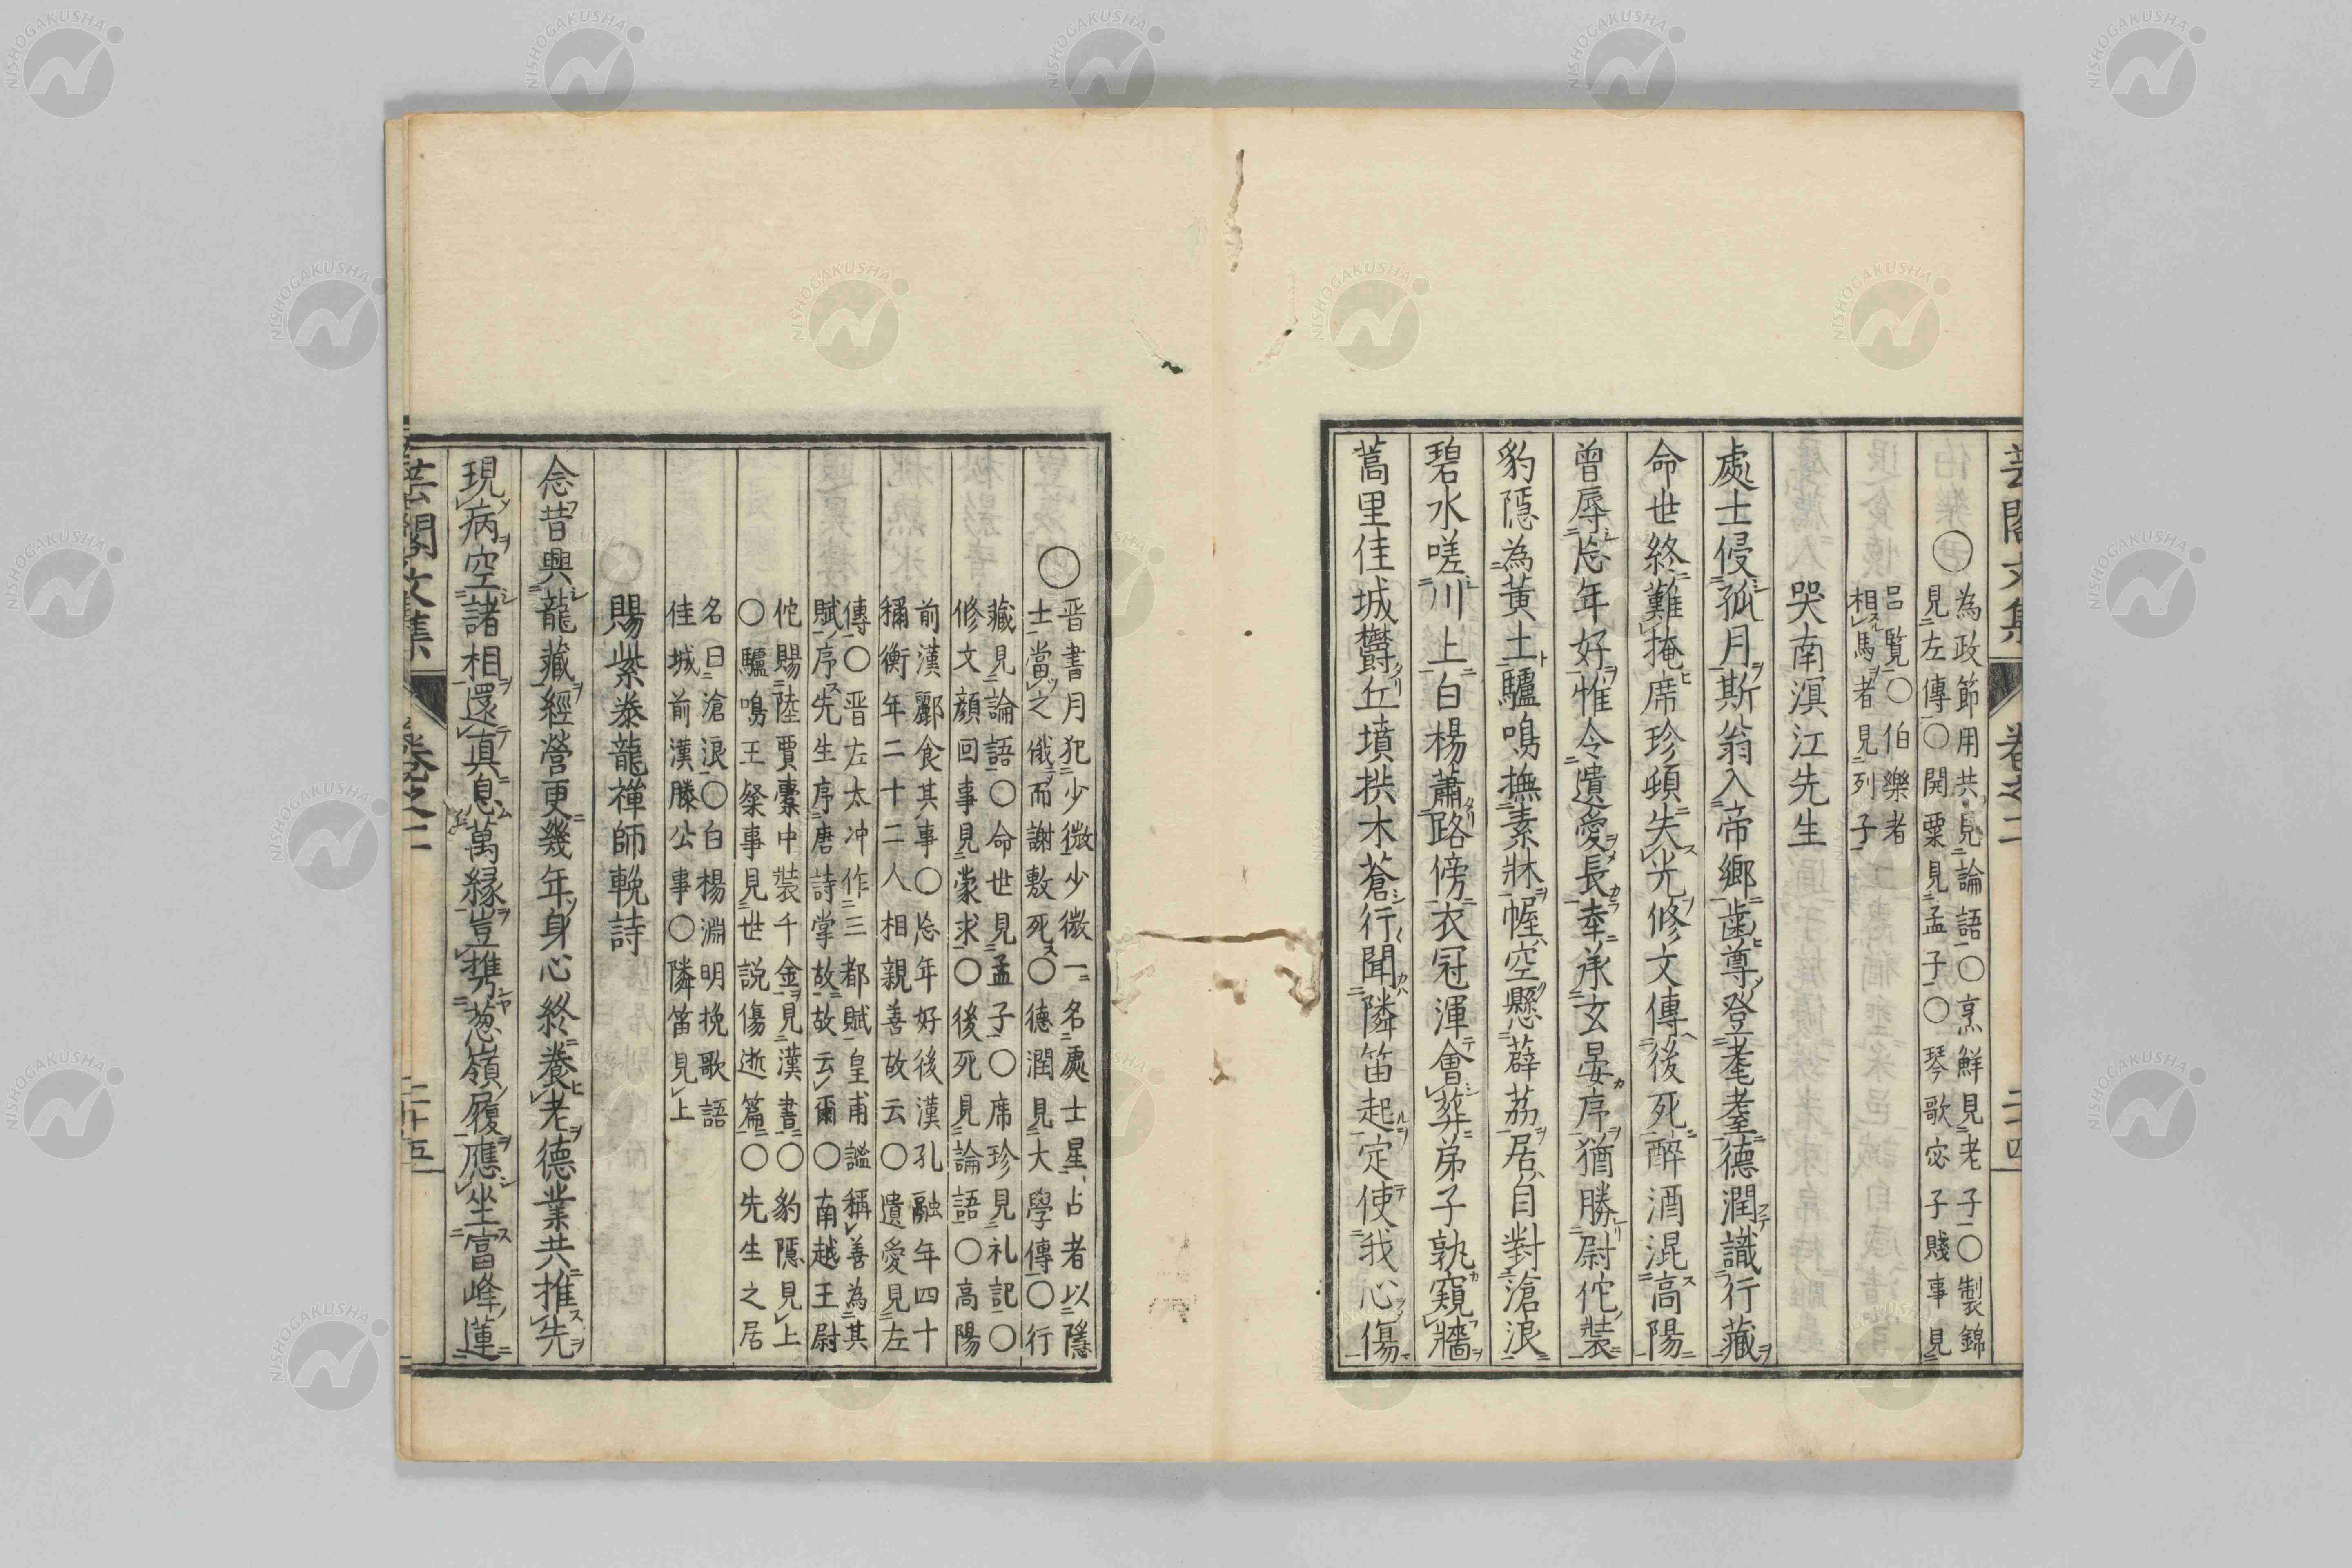 芸閣文集 卷之二 二十四
○為政節用共見論語○烹鮮見老子○製錦
見左傳○開粟見孟子○琴歌宓子賤事見
呂覽○伯樂者
相馬者見列子
哭南溟江先生
處士侵孤月斯翁入帝鄉齒尊登耄耋德潤識行藏
命世終難掩席珍頓失光修文傳後死醉酒混高陽
曾辱忘年好惟令遺愛長奉承玄晏序猶勝尉佗裝
豹隱為黃土驢鳴撫素牀幄空懸薜荔居自對滄浪
碧水嗟川上白楊蕭路傍衣冠渾會葬弟子孰窺牆
蒿里佳城欝丘墳拱木蒼行聞隣笛起定使我心傷
○晋書月犯少微少微一名處士星占者以隱
士當之俄而謝敷死○德潤見大學傳○行
藏見論語○命世見孟子○席珍見礼記○
修文顔回事見蒙求○後死見論語○高陽
前漢酈食其事○忘年好後漢孔融年四十
禰衡年二十二人相親善故云○遺愛見左
傳○晋左太冲作三都賦皇甫謐稱善為其
賦序先生序唐詩掌故故云爾○南越王尉
佗賜陸賈橐中裝千金見漢書○豹隱見上
○驢鳴王粲事見世説傷逝篇○先生之居
名曰滄浪○白楊淵明挽歌語
佳城前漢滕公事○隣笛見上
賜紫泰龍禅師輓詩
念昔興龍藏經營更幾年身心終養老德業共推先
現病空諸相還真息萬縁豈携葱嶺履應坐富峰蓮
芸閣文集 卷之二 二十五